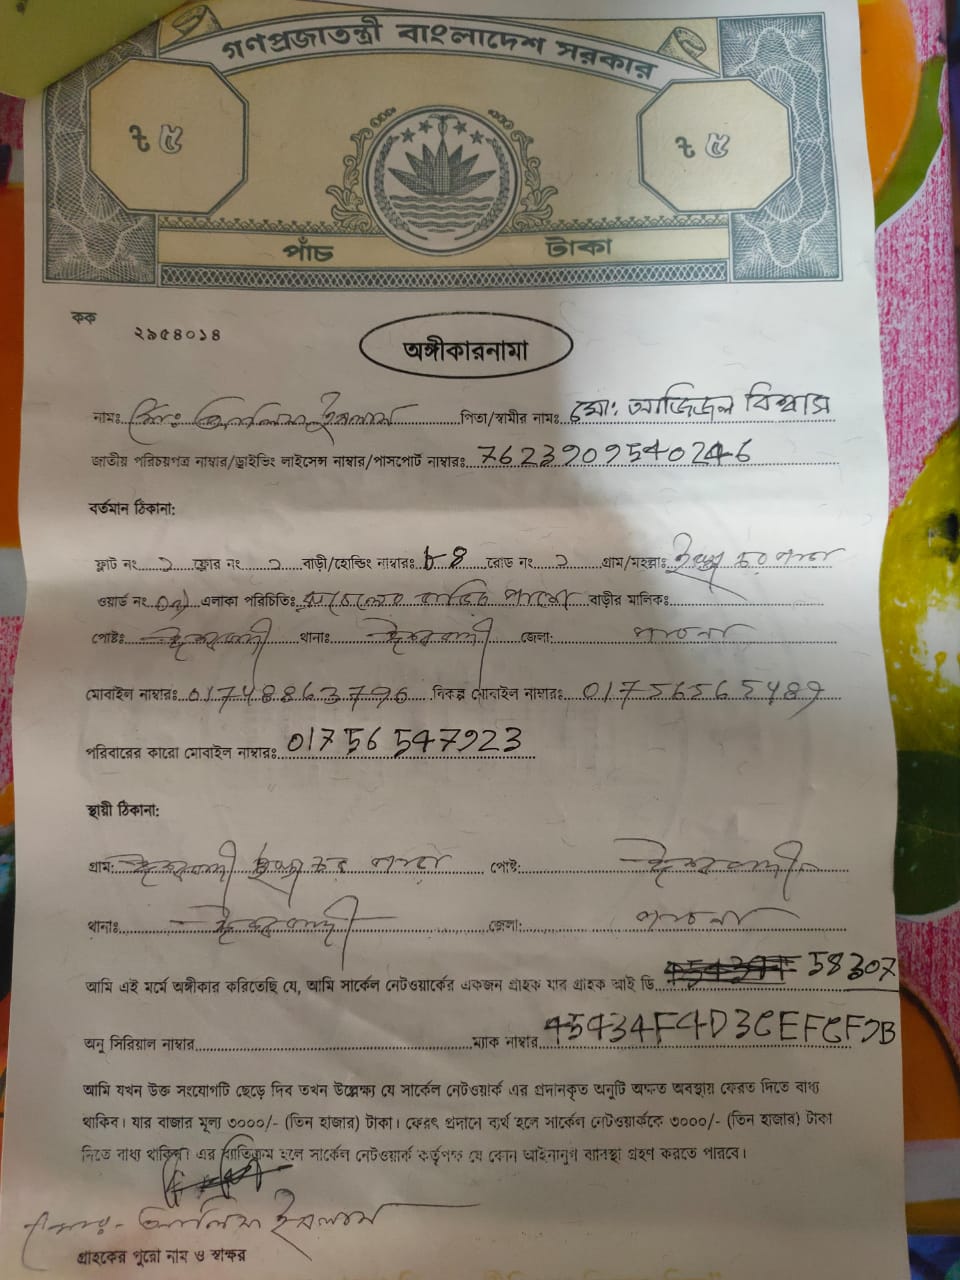 গণপ্রজাতন্ত্রী বাংলাদেশ সরকার
৳ ৫ ৳ ৫
পাঁচ টাকা
কক
২৯৫৪০১৪
অঙ্গীকারনামা
নামঃ মোঃ আলিম ইসলাম পিতা/স্বামীর নামঃ মোঃ আজিজুল বিশ্বাস
জাতীয় পরিচয়পত্র নাম্বার/ড্রাইভিং লাইসেন্স নাম্বার/পাসপোর্ট নাম্বারঃ 7623909540246
বর্তমান ঠিকানা:
ফ্লাট নং ১ ফ্লোর নং ১ বাড়ী/হোল্ডিং নাম্বারঃ ৮৪ রোড নং ১ গ্রাম/মহল্লাঃ
ওয়ার্ড নং এলাকা পরিচিতিঃ বাড়ীর মালিকঃ
পোষ্টঃ ঈশ্বরদী থানাঃ ঈশ্বরদী জেলা: পাবনা
মোবাইল নাম্বারঃ 01748863796 বিকল্প মোবাইল নাম্বারঃ 01756565489
পরিবারের কারো মোবাইল নাম্বারঃ 01756547923
স্থায়ী ঠিকানা:
গ্রাম: ঈশ্বরদী পোষ্ট: ঈশ্বরদী
থানাঃ ঈশ্বরদী জেলা: পাবনা
আমি এই মর্মে অঙ্গীকার করিতেছি যে, আমি সার্কেল নেটওয়ার্কের একজন গ্রাহক যার গ্রাহক আই ডি 58307
অনু সিরিয়াল নাম্বার ম্যাক নাম্বার 45434F4D3CEFCF2B
আমি যখন উক্ত সংযোগটি ছেড়ে দিব তখন উল্লেক্ষ্য যে সার্কেল নেটওয়ার্ক এর প্রদানকৃত অনুটি অক্ষত অবস্থায় ফেরত দিতে বাধ্য
থাকিব। যার বাজার মূল্য ৩০০০/- (তিন হাজার) টাকা। ফেরৎ প্রদানে ব্যর্থ হলে সার্কেল নেটওয়ার্ককে ৩০০০/- (তিন হাজার) টাকা
দিতে বাধ্য থাকিব। এর ব্যতিক্রম হলে সার্কেল নেটওয়ার্ক কর্তৃপক্ষ যে কোন আইনানুগ ব্যবস্থা গ্রহণ করতে পারবে।
আলিম ইসলাম
গ্রাহকের পুরো নাম ও স্বাক্ষর